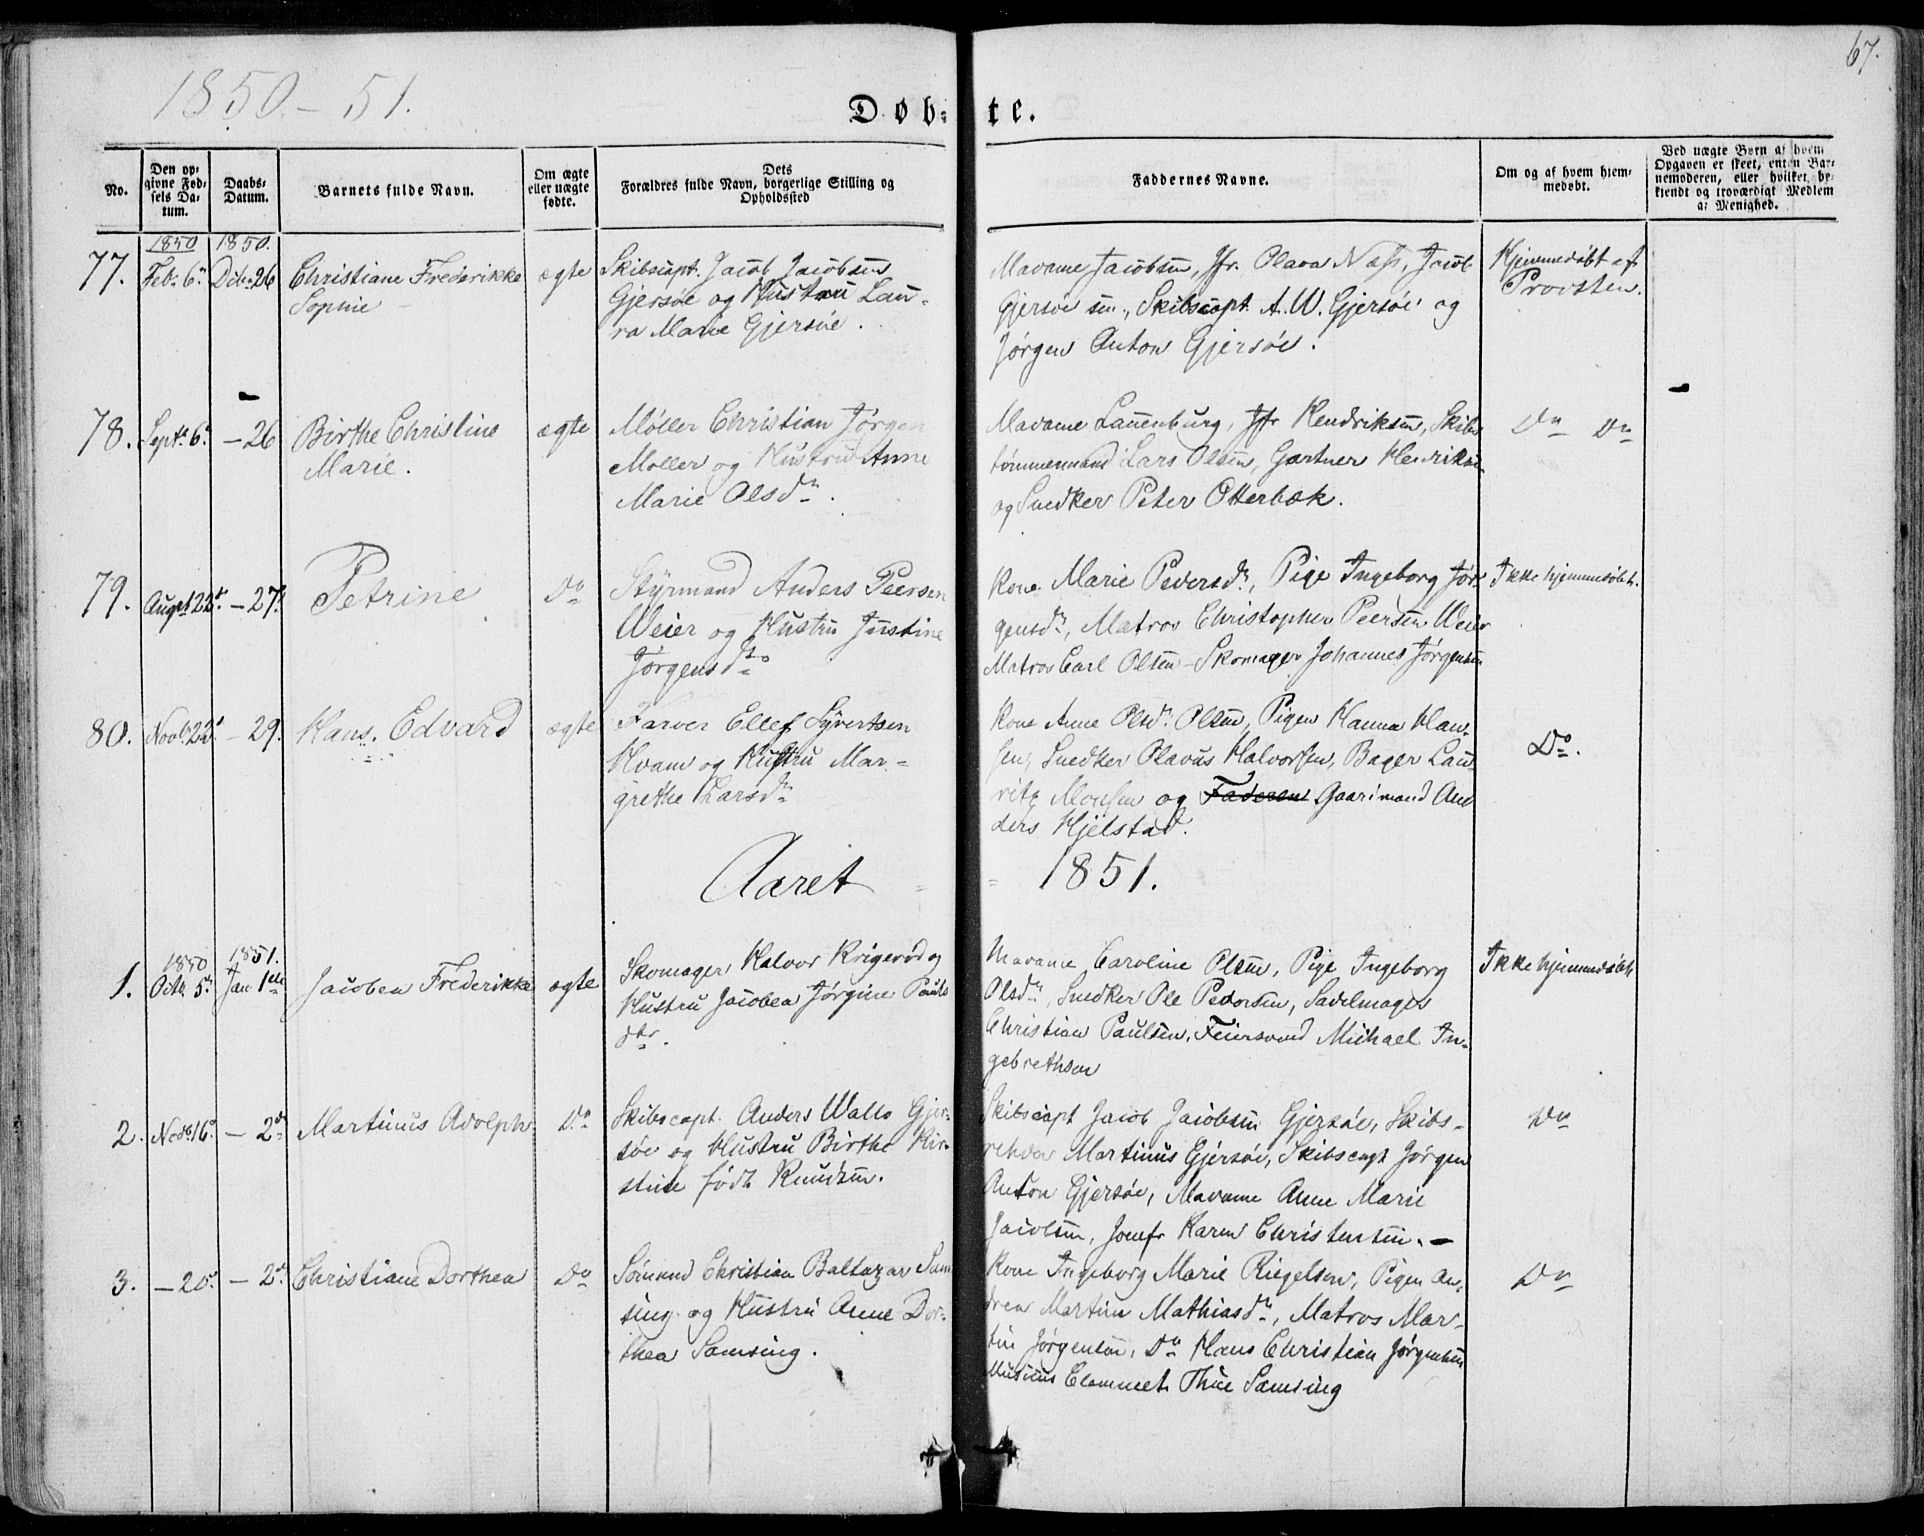 67.
1850.-51.
Døb-te.
No.
Den opgivne Fødsels Datum.
Daabs-Datum.
Barnets fulde Navn.
Om ægte eller uægte fødte.
Dets Forældres fulde Navn, borgerlige Stilling og Opholdssted
Faddernes Navne.
Om og af hvem hjemmedøbt.
Ved uægte Børn af hvem Opgaven er skeet, enten Barnemoderen, eller hvilket bekjendt og troværdigt Medlem af Menighed.
1850 1850.
77. Feb. 6 Dcb. 26 Christiane Frederikke
Sophie
ægte
Skibscapt. Jacob Jacobsen
Gjersøe og Hustru Lau-
ra Marie Gjersøe.
Madame Jacobsen, Jfr. Olava Næss, Jacob
Gjersøe sen., Skibscapt. A. W. Gjersøe og
Jørgen Anton Gjersøe.
Hjemmedøbt af
Provsten.
78. Septr. 6 -26 Birthe Christine
Marie.
ægte
Møller Christian Jørgen
Møller og Hustru Anne
Marie Olsdr.
Madame Lauenburg, Jfr Hendriksen, Skibs
tømmermand Lars Olsen, Gartner Henriksen
og Snedker Peter Otterbæk.
Do Do
79. Augst 22 -27. Petrine
Do
Styrmand Anders Peersen
Weier og Hustru Justine
Jørgensdr.
Kone Marie Pedersdr, Pige Ingeborg Jør-
gensdr, Matros Christopher Peersen Weier
Matros Carl Olsen - Skomager Johannes Jørgensen
Ikke hjemmedøbt.
80. Novbr 22 - 29. Hans Edvard
ægte
Farver Ellef Syvertsen
Hvam og Hustru Mar-
grethe Larsdr
Kone Anne Olsdr Olsen, Pigen Hanna Han-
sen, Snedker Olavus Halvorsen, Bager Lau-
ritz Monsen og Faderen Gaarmand An
ders Hjelstad.
Do.
Aaret 1851.
1850 1851.
1. Octb. 5 Jan 1ste Jacobea Frederikke
ægte
Skomager Halvor Krigerød og
Hustru Jacobea Jørgine Pauls
dtr.
Madame Caroline Olsen, Pige Ingeborg
Olsdr, Snedker Ole Pedersen, Sadelmager
Christian Paulsen, Feiersvend Michael In-
gebrethsen
Ikke hjemmedøbt
2. Novbr 16 - 2 Martinus Adolph
Do
Skibscapt. Anders Wallo Gjer-
søe og Hustru Birthe Kir-
stine født Knudsen.
Skibscapt Jacob Jacobsen Gjersøe, Skibs-
rehder Martinus Gjersøe, Skibscapt Jørgen
Anton Gjersøe, Madame Anne Marie
Jacobsen, Jomfr Karen Christensen. -
Do
3. - 20 - 2 Christiane Dorthea
Do
Sømand Christian Baltazar Sam
sing og Hustru Anne Dor-
thea Samsing.
Kone Ingeborg Marie Riegelsen, Pigen An-
drea Martine Mathiasdr, Matros Mar-
tin Jørgensen, Do Hans Christian Jørgensen
Musicus Clammet Thue Samsing
Do